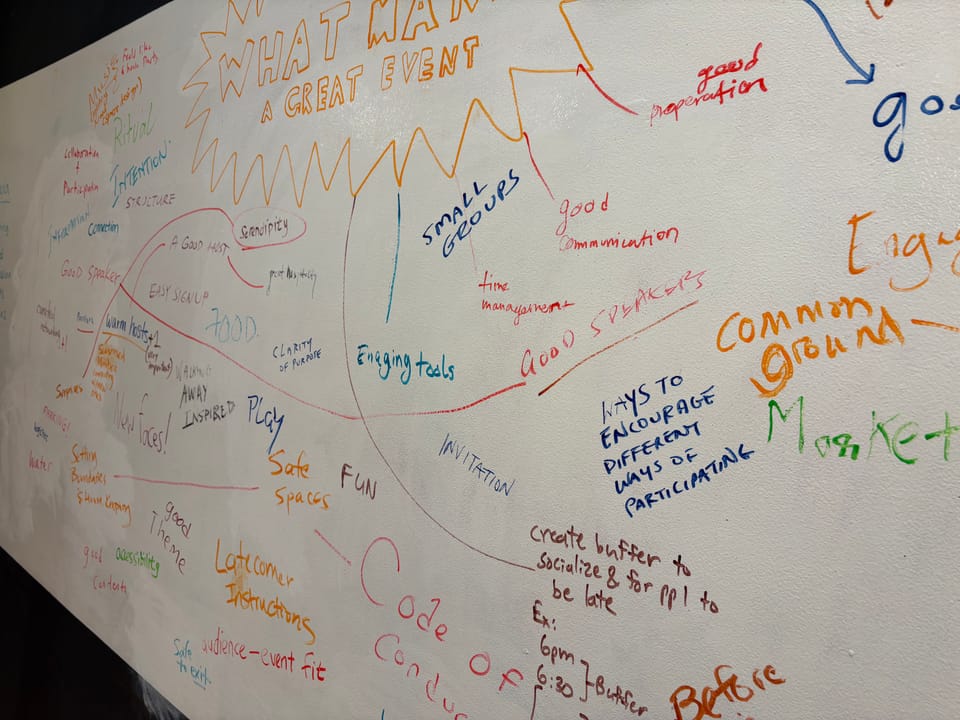 WHAT MA
A GREAT EVENT
good
preperation
goo
Ritual
INTENTION.
STRUCTURE
Collaboration
+
Participatin
Connection
SMALL
GROUPS
good
communication
Serendipity
A GOOD HOST
Good speaker
EASY SIGNUP
FOOD.
time
management
Engag
Common
ground
GOOD SPEAKERS
Engaging tools
CLARITY
OF PURPOSE
warm hosts +2
(very
important)
WALKING
AWAY
INSPIRED
PLAY
New faces!
Surprises
PARKING!
Water
WAYS TO
ENCOURAGE
DIFFERENT
WAYS OF
PARTICIPATING
Market
INVITATION
Setting
Boundaries
Safe
Spaces
FUN
good
Theme
good
Contents
accessibility
Latecomer
Instructions
create buffer to
socialize & for ppl to
be late
Ex:
6pm
6:30
Buffer
Code of
Conduc
audience-event fit
Safe
to exit
Before